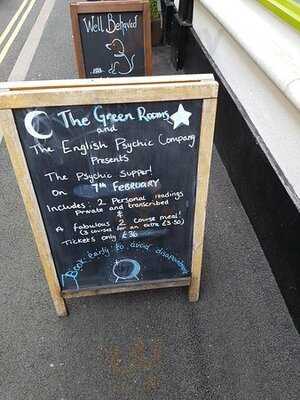 Well Behaved
The Green Rooms
and
The English Psychic Company
Presents
The Psychic Supper!
On 7TH FEBRUARY
Includes: 2 Personal readings
Private and transcribed
&
A fabulous 2 course meal!
(3 courses for an extra £3.50)
Tickets only £36
Book early to avoid disappointment